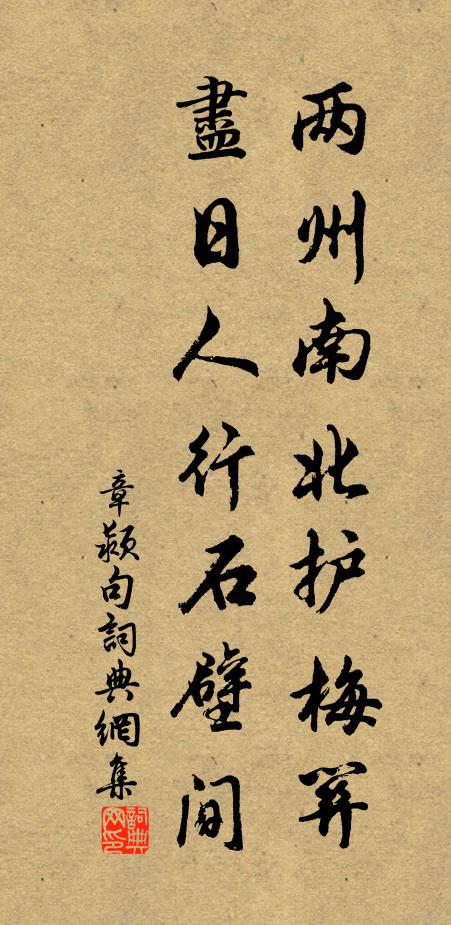 两州南北护梅關
盡日人行石壁間
章句詞典網集
詞典
网印